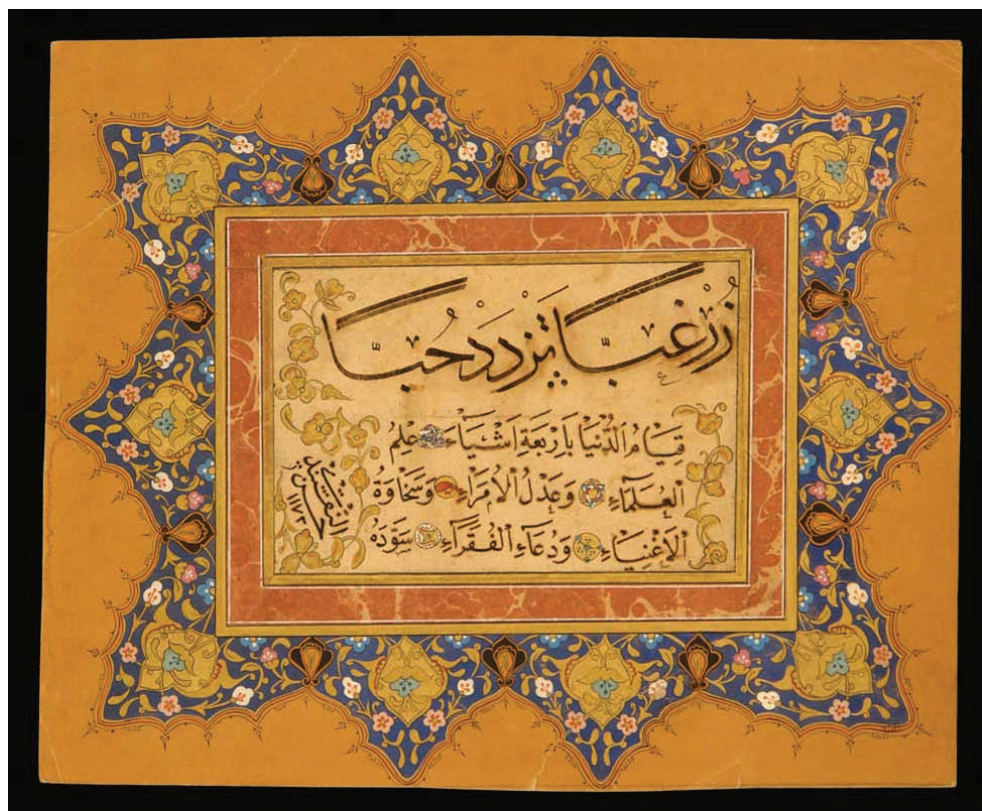 زُرْ غِبًّا تَزْدَدْ حُبًّا
قِيَامُ الدُّنْيَا بِأَرْبَعَةِ اَشْيَاءَ عِلْمُ
الْعُلَمَاءِ وَعَدْلُ الْاُمَرَاءِ وَسَخَاوَةُ
الْاَغْنِيَاءِ وَدُعَاءِ الْفُقَرَاءِ سَوَّدَهُ
حسن
النقشبندى
١١٧٣